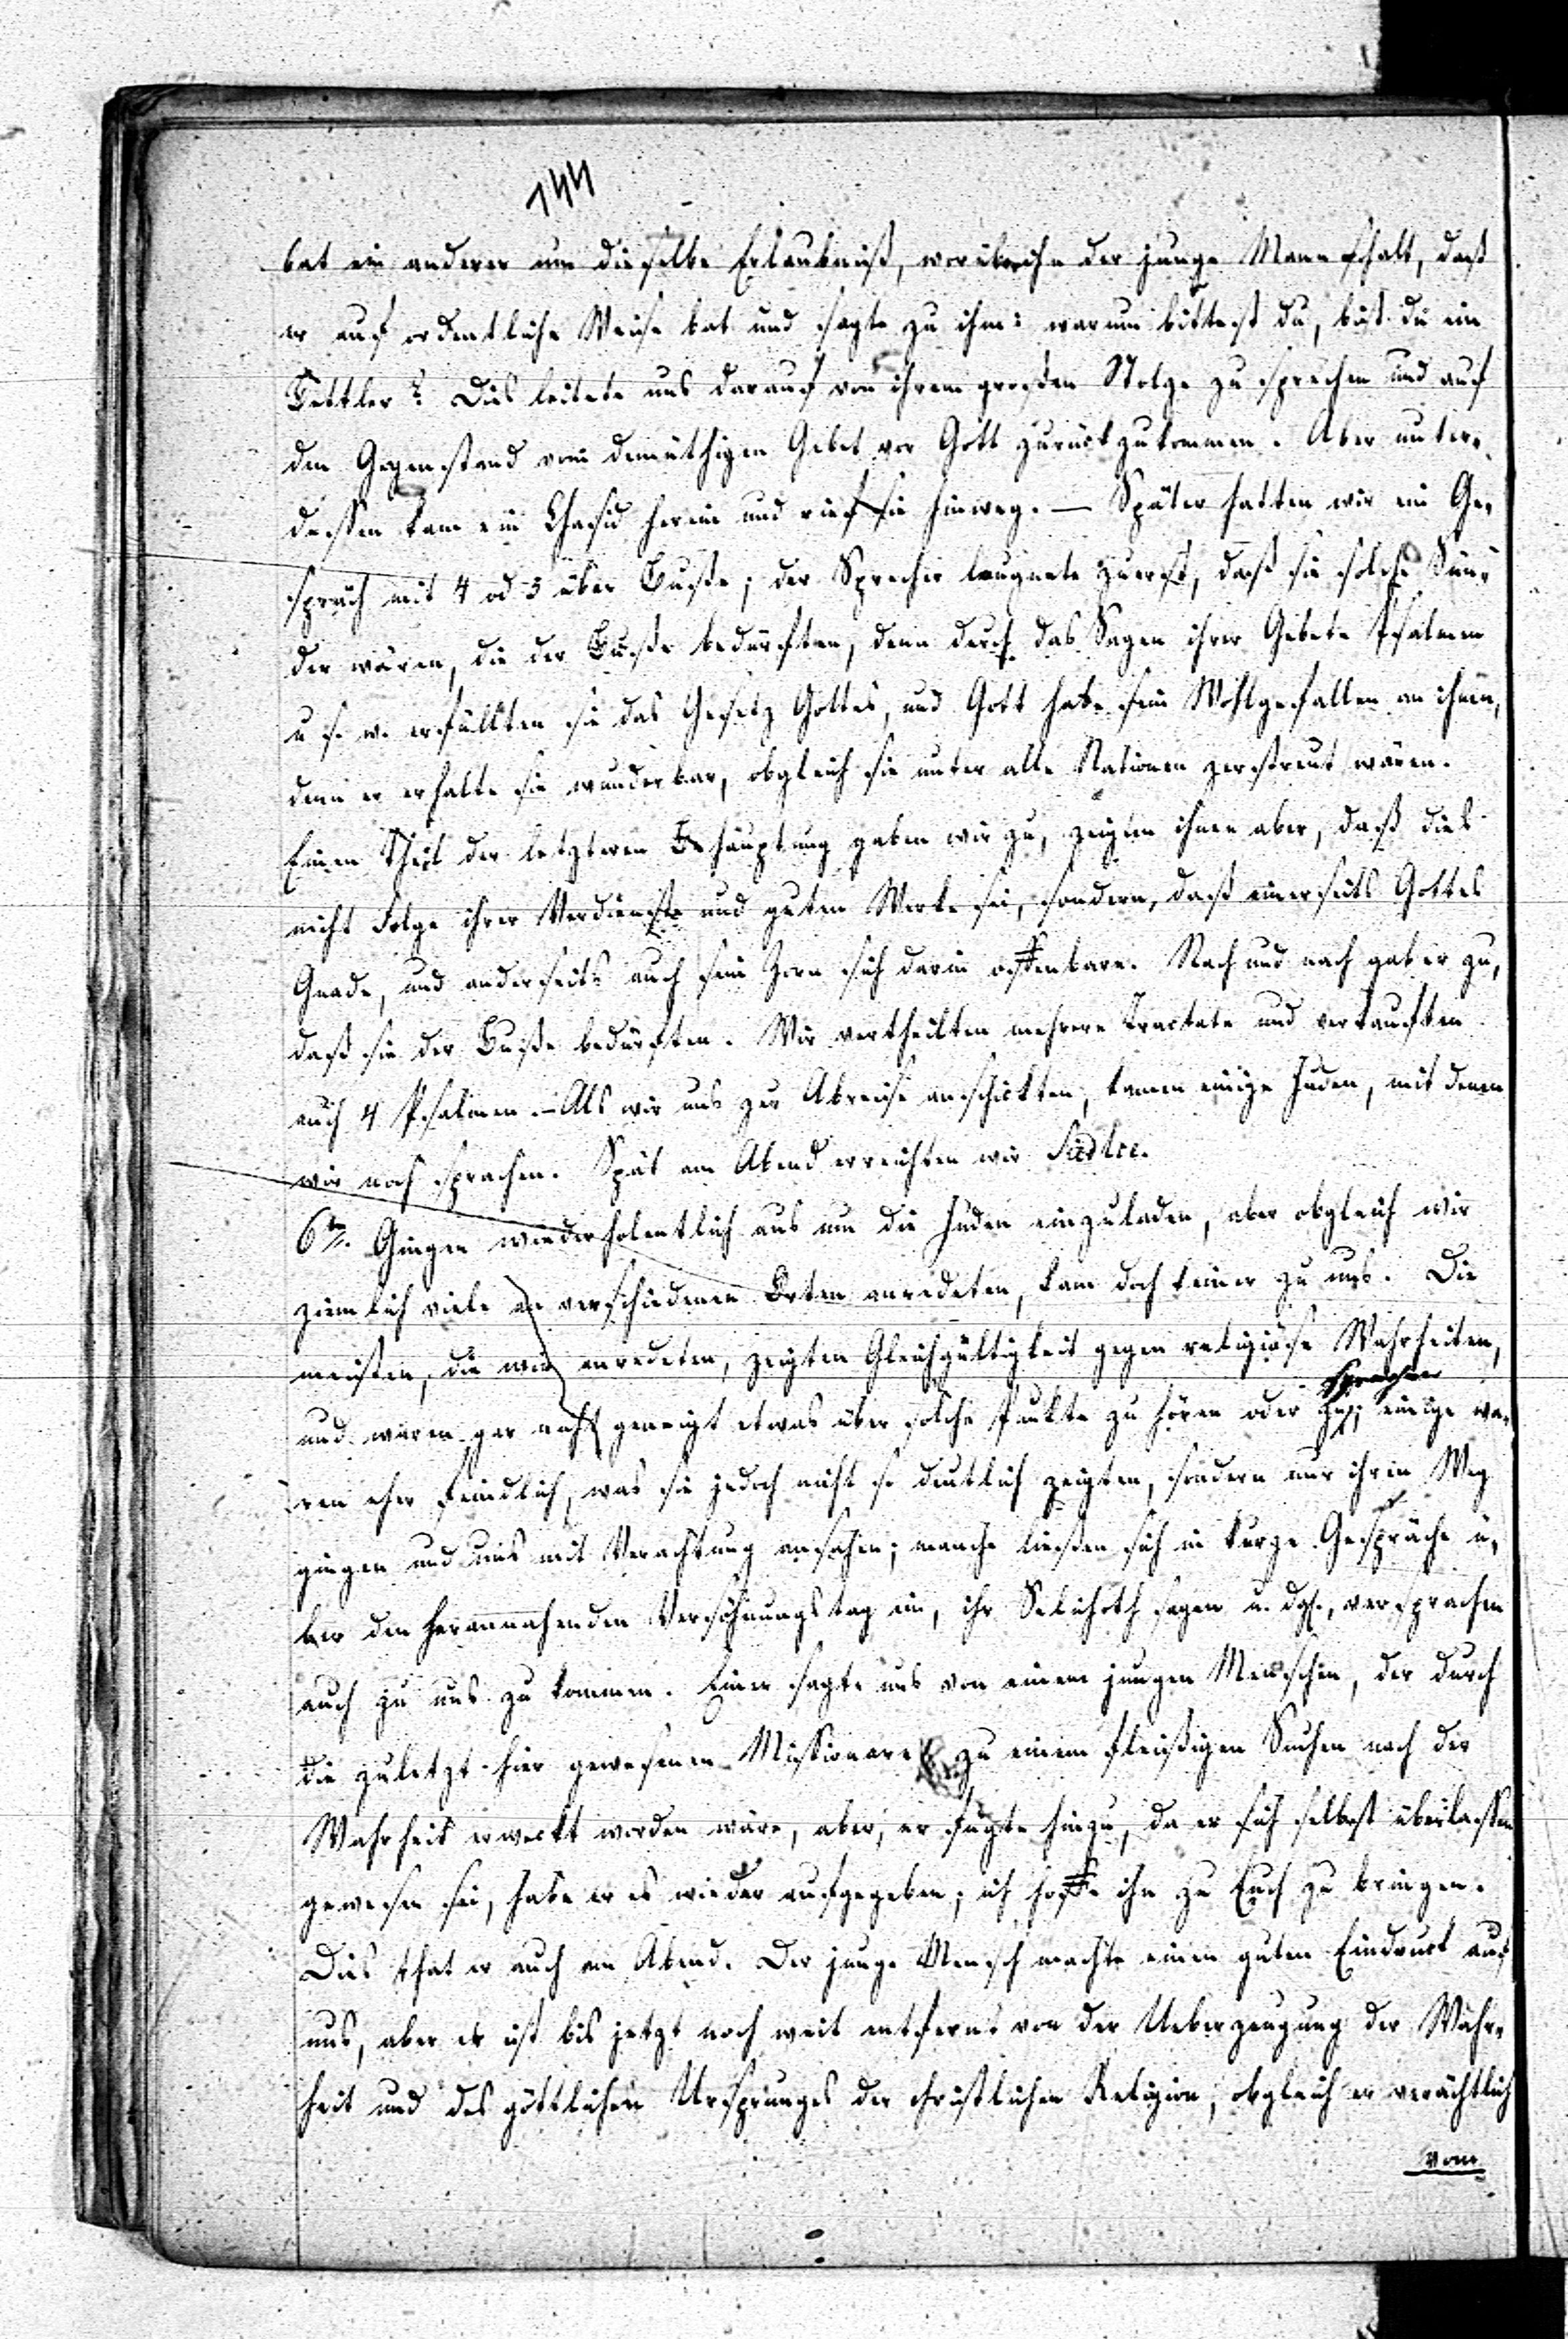 144
bat ein anderer um dieselbe Erlaubniß, worüber ihn der junge Mann schalt, daß
er auf ordentliche Weise bat und sagte zu ihm: warum bittest du, bist du ein
Bettler? Dies leitete uns darauf von ihrem großen Stolze zu sprechen und auf
den Gegenstand vom demüthigen Gebet vor Gott zurückzukommen. Aber unter-
dessen kam ein Chasid herein und rief sie hinweg. — Später hatten wir ein Ge-
spräch mit 4 od 5 über Buße; der Sprecher laugnete zuerst, daß sie solche Sün-
der wären, die der Buße bedürften, denn durch das Sagen ihrer Gebete Psalmen
u s. w. erfüllten sie das Gesetz Gottes, und Gott habe sein Wohlgefallen an ihnen,
denn er erhalte sie wunderbar, obgleich sie unter alle Nationen zerstreut wären.
Einen Theil der letzteren Behauptung gaben wir zu, zeigten ihnen aber, daß dies
nicht Folge ihrer Verdienste und guten Werke sei, sondern, daß einerseits Gottes
Gnade, und anderseits auch sein Zorn sich darin offenbare. Nach und nach gab er zu,
daß sie der Buße bedürften. Wir vertheilten mehrere Tractate und verkauften
auch 4 Psalmen. – Als wir uns zur Abreise anschickten, kamen einige Juden, mit denen
wir noch sprachen. Spät am Abend erreichten wir Siedlce.
6ten. Gingen wiederholentlich aus um die Juden einzuladen, aber obgleich wir
ziemlich viele an verschiedenen Orten anredeten, kam doch keiner zu uns. Die
meisten, die wir anredeten, zeigten Gleichgültigkeit gegen religiöse Wahrheiten,
und waren gar nicht geneigt etwas über solche Punkte zu hören oder zu sprechen; einige wa-
ren eher feindlich, was sie jedoch nicht so deutlich zeigten, sondern nur ihren Weg
gingen und uns mit Verachtung ansahen; manche ließen sich in kurze Gespräche ü-
ber den herannahenden Versöhnungstag ein, ihr Selichoth sagen u. dgl., versprachen
auch zu uns zu kommen. Einer sagte uns von einem jungen Menschen, der durch
die zuletzt hier gewesenen Missionare zu einem fleißigen Suchen nach der
Wahrheit erweckt worden wäre, aber, er fügte hinzu, da er sich selbst überlassen
gewesen sei, habe er es wieder aufgegeben; ich hoffe ihn zu Euch zu bringen.
Dies that er auch am Abend. Der junge Mensch machte einen guten Eindruck auf
uns, aber er ist bis jetzt noch weit entfernt von der Ueberzeugung der Wahr-
heit und des göttlichen Ursprunges der christlichen Religion, obgleich er verächtlich
vom